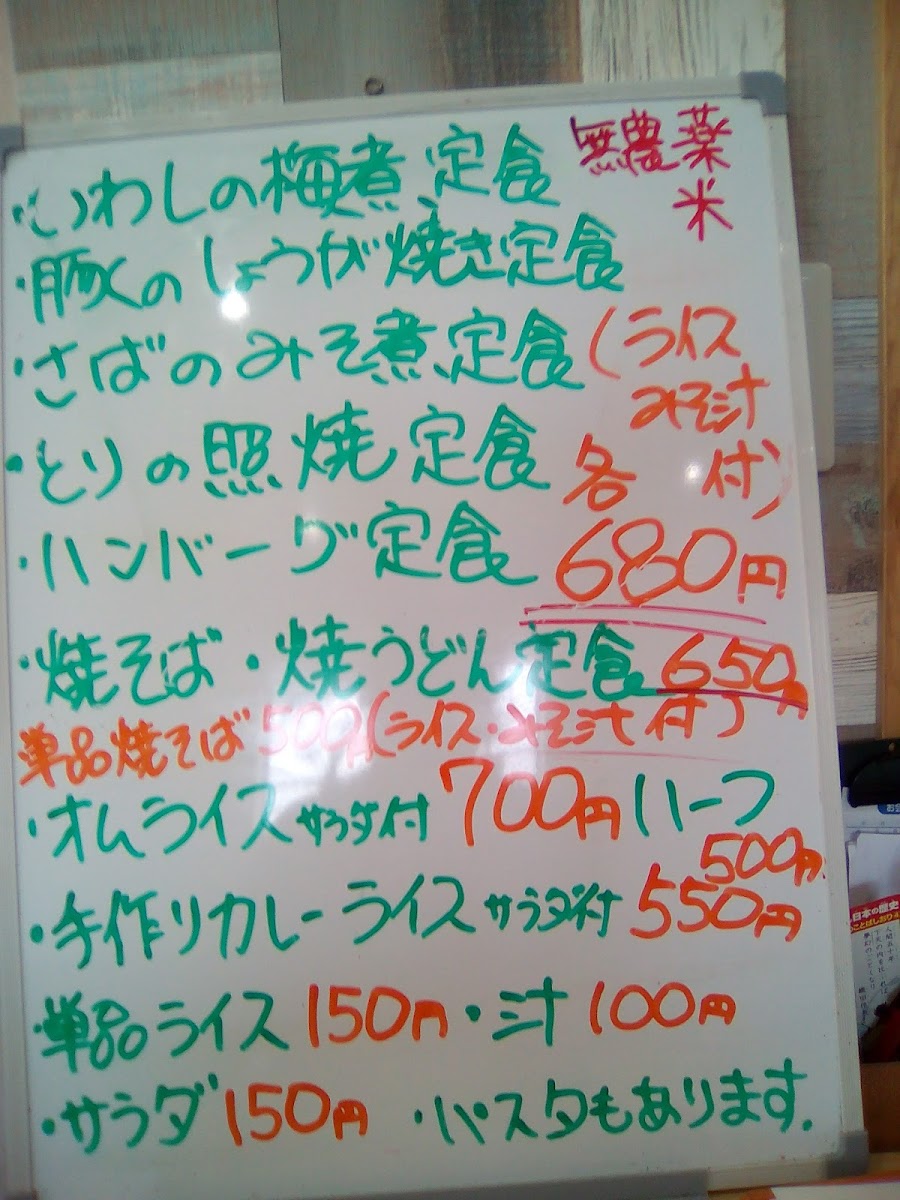 ・いわしの梅煮定食
無農薬
米
・豚のしょうが焼き定食
・さばのみそ煮定食
(ライス
みそ汁
各 付)
・とりの照焼定食
・ハンバーグ定食
680円
・焼そば・焼うどん定食 650円
単品焼そば 500円(ライス・みそ汁付)
・オムライス サラダ付 700円 ハーフ
500円
・手作りカレーライス サラダ付 550円
単品ライス 150円・汁 100円
・サラダ 150円 ・パスタもあります.
日本の歴史